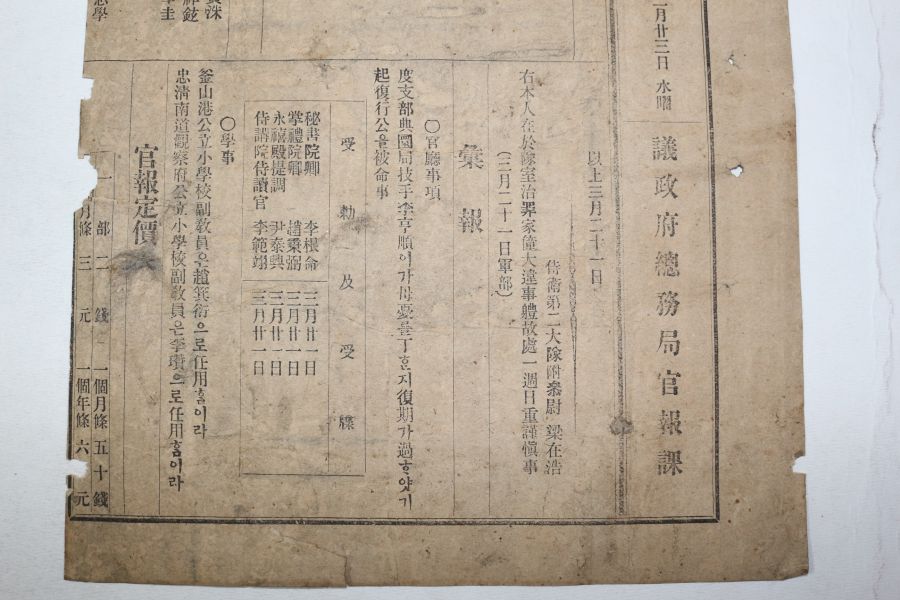 月廿三日 水曜
議政府總務局官報課
以上三月二十一日
侍衛第二大隊附叅尉 梁在浩
右本人在於隊室治罪家僮大違事體故處一週日重謹愼事
(三月二十一日軍部)
彙報
○官廳事項
度支部典圜局技手李亨順이가母憂를丁ᄒᆞᆫ지復期가過ᄒᆞ얏기
起復行公을被命事
受勅及受牒
秘書院卿 李根命 三月廿一日
掌禮院卿 趙秉弼 三月廿一日
永禧殿提調 尹泰興 三月廿一日
侍講院侍讀官 李範翊 三月廿一日
○學事
釜山港公立小學校副敎員은趙箕衍으로任用홈이라
忠淸南道觀察府公立小學校副敎員은李瓚으로任用홈이라
官報定價
一部 二錢 一個月條 五十錢
月條 三元 一個年條 六元